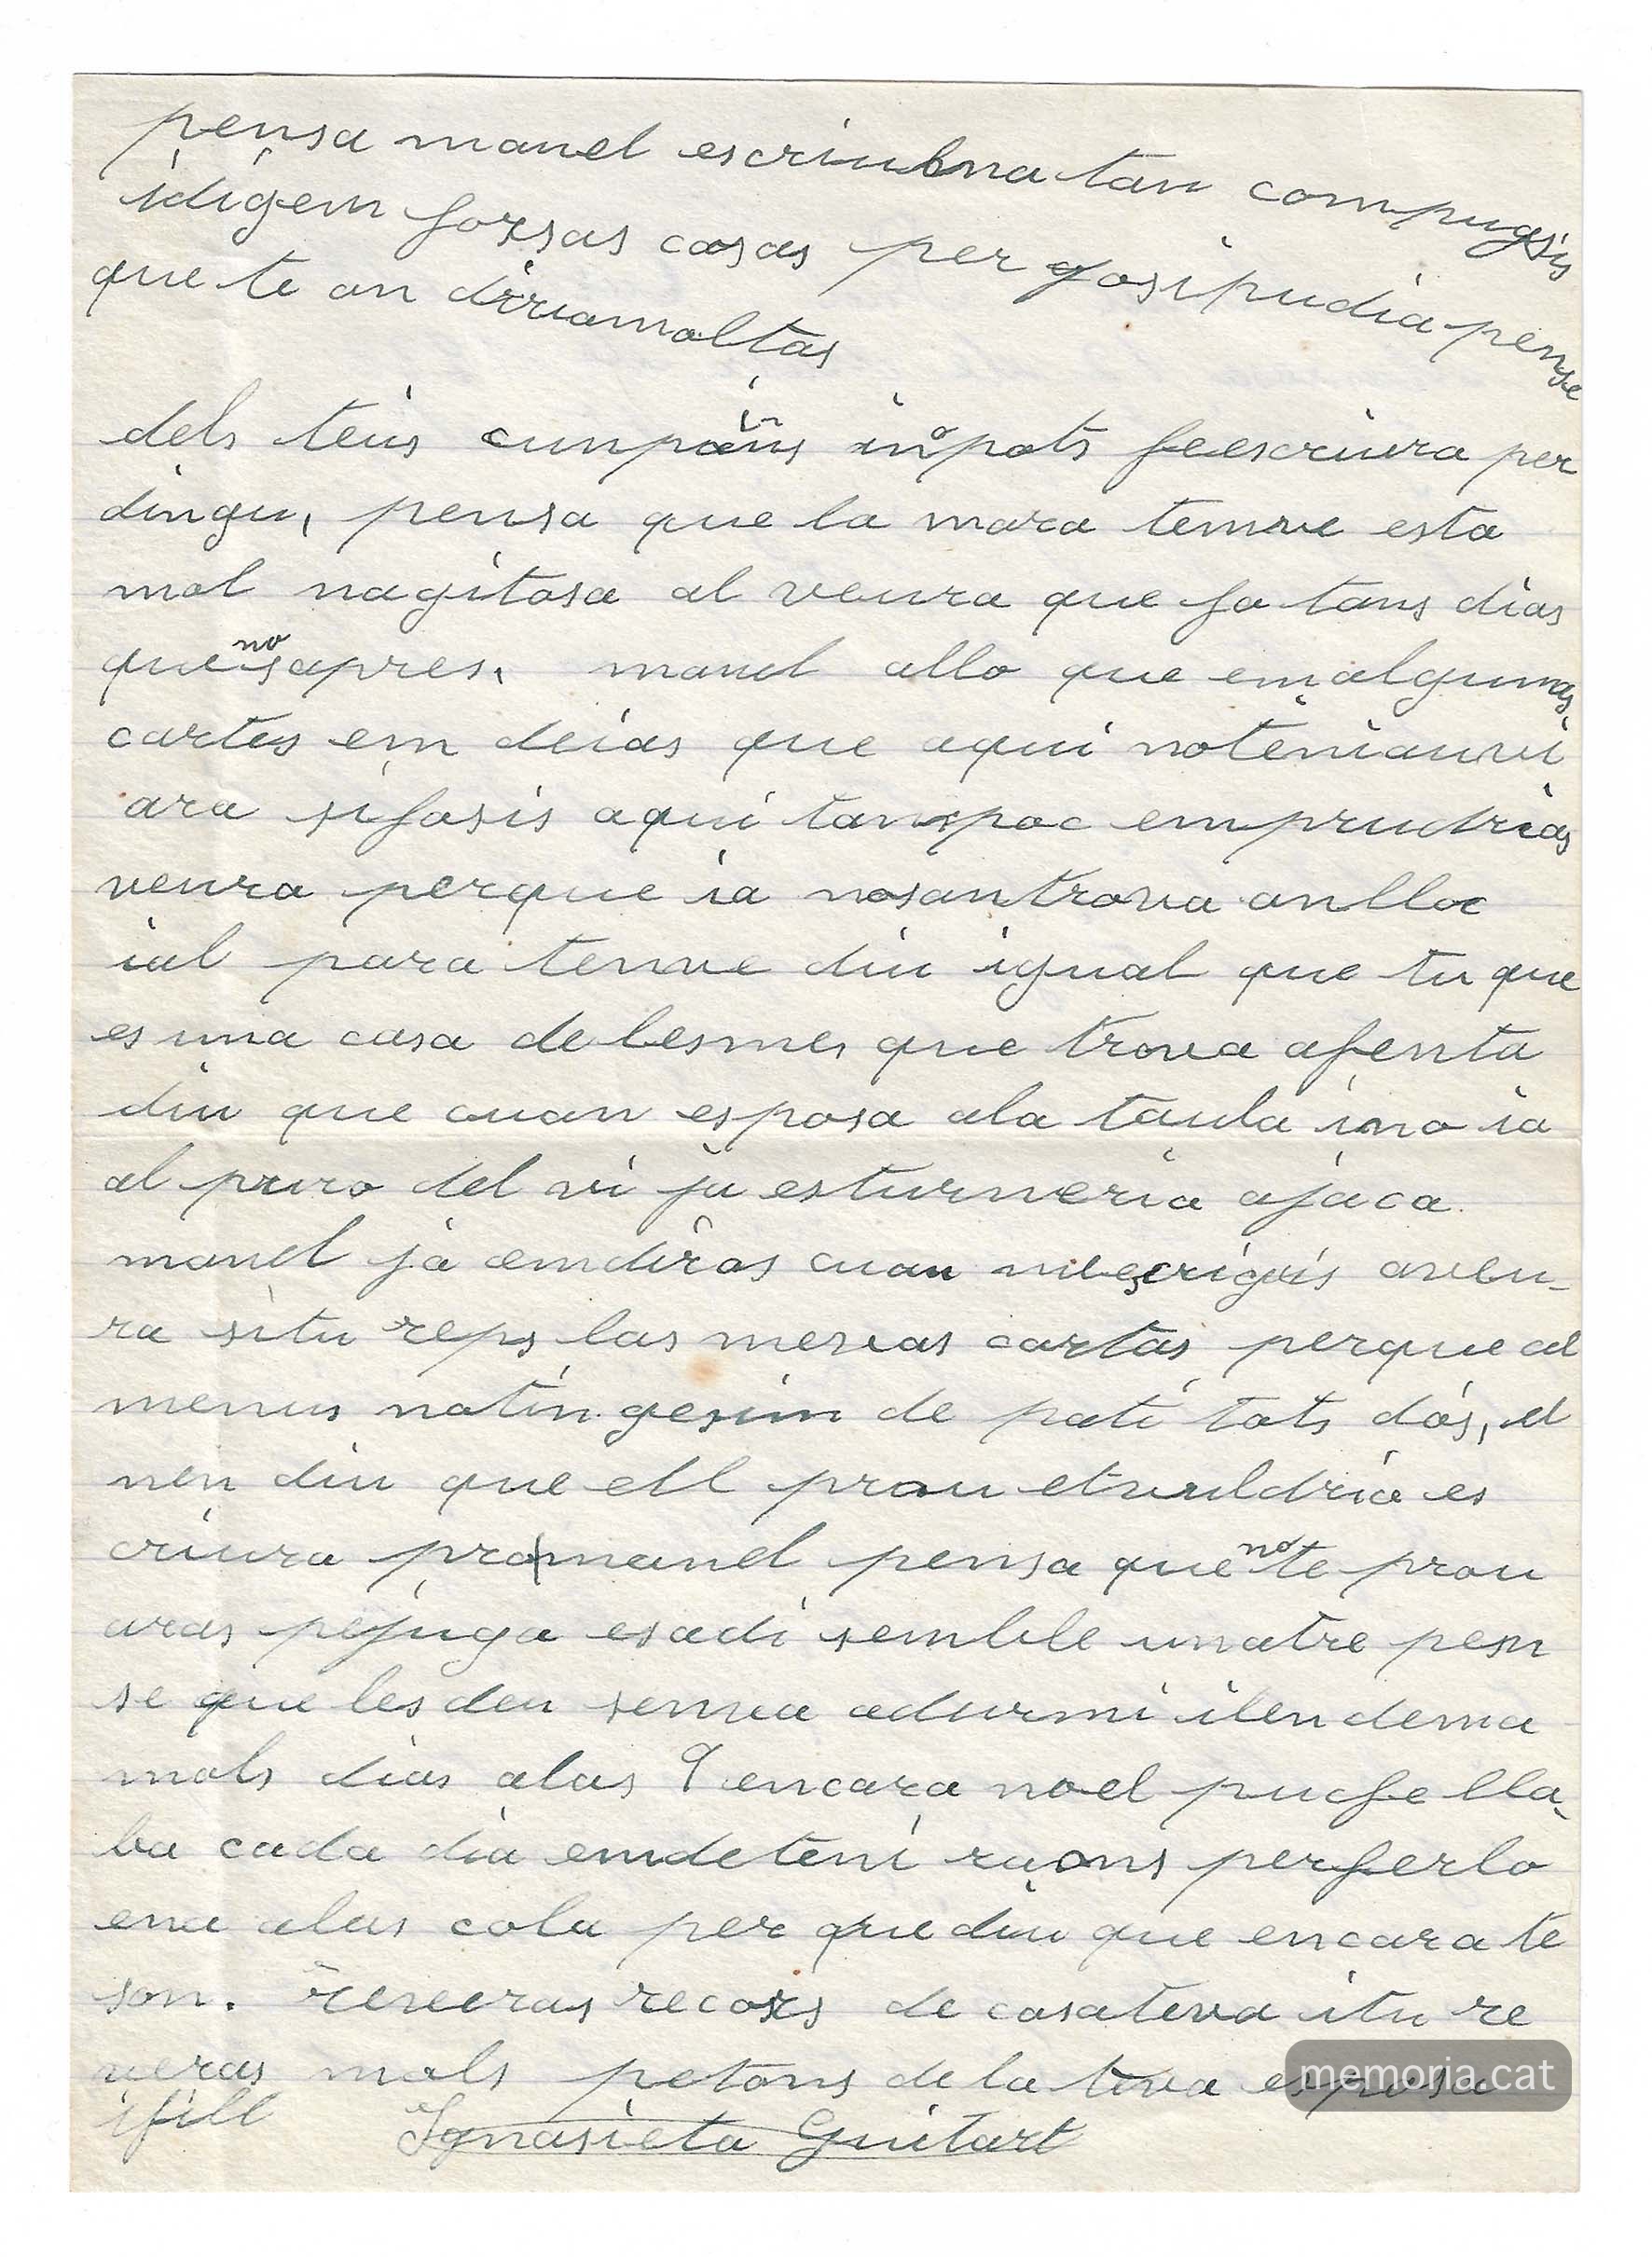 pensa manel escriubma tan compugsis
idigem forsas cosas per gosipudia pense
que te an diriamoltas
dels teus cunpañs ino pots feescriura per
dingu, pensa que la mara temve esta
mol nagitosa al veura que fa tans dias
que no sapres. manel allo que em algunas
cartes em deias que aqui noteniauvi
ara sifosis aqui tampoc emprudrias
veura perque ia nosantrova anlloc
ial para temve diu igual que tu que
es una casa de lesmes que trova afenta
diu que cuan esposa ala taula ino ia
al puro del vi ja esturneria ajaca.
manel ja emdiras cuan mescrigis aveu-
ra situ reps las mevas cartas perque al
menus notingesim de pati tots dos, el
nen diu que ell prou etvuldria es
criura pro manel pensa que no te prou
aras pejuga esadi semble unatre pen
se que les deu senva adurmi ilendema
mols dias alas 9 encara noel pucfe lla
ba cada dia emdeteni raons perferlo
ena alas cola per quediu que encara te
son. reveuras recors de casateva itu re
veras mols petons de la teva esposa
ifill Ignasieta Guitart
memoria.cat